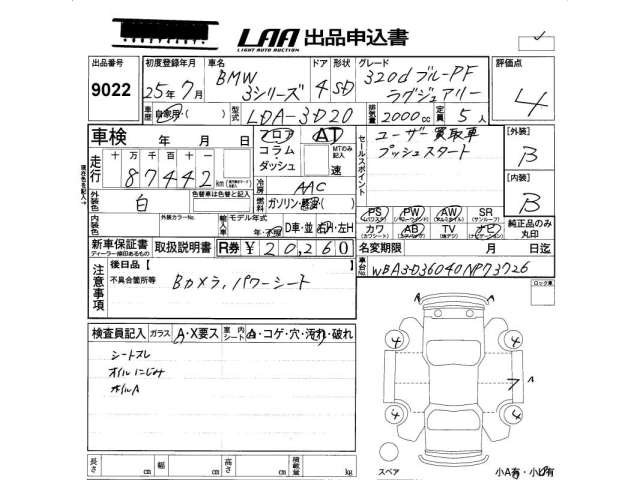 LAA 出品申込書
LIGHT AUTO AUCTION
出品番号 初度登録年月 車名 ドア 形状 グレード 評価点
9022 25年7月 BMW 3シリーズ 4 SD 320d ブルーPF ラグジュアリー 4
車歴 自家用・( ) 型式 LDA-3D20 排気量 2000cc 定員 5人
車検 年 月 日 フロア コラム・ダッシュ AT MTのみ記入 速
セールスポイント ユーザー買取車
プッシュスタート
[外装] B
[内装] B
走行 十万千百十一
87442 km
冷房 AAC
外装色 白 色替車は色替と記入 燃料 ガソリン・軽油・( )
内装色 外装カラーNo. 輸入車 モデル年式 年・不明 D車・並 右H・左H
PS (パワステ) PW (パワーウインド) AW (アルミホイル) SR (サンルーフ)
カワ (カワシート) AB (エアバッグ) TV (地デジ) ナビ (ナビゲーション)
純正品のみ丸印
新車保証書 ディーラー捺印あるもの 取扱説明書 R券 ¥ 20,260 名変期限 月 日迄
注意事項 後日品【
不具合箇所等 Bカメラ, パワーシート
車台No. WBA3D36040NP73726
ロック車
検査員記入 ガラス A・X要ス 室内シート A・コゲ・穴・汚れ・破れ
シートスレ
オイルにじみ
ホイルA
4 4
7 A
4 4
長さ cm 幅 cm 高さ cm 積載量 kg
スペア 小A有・小P有